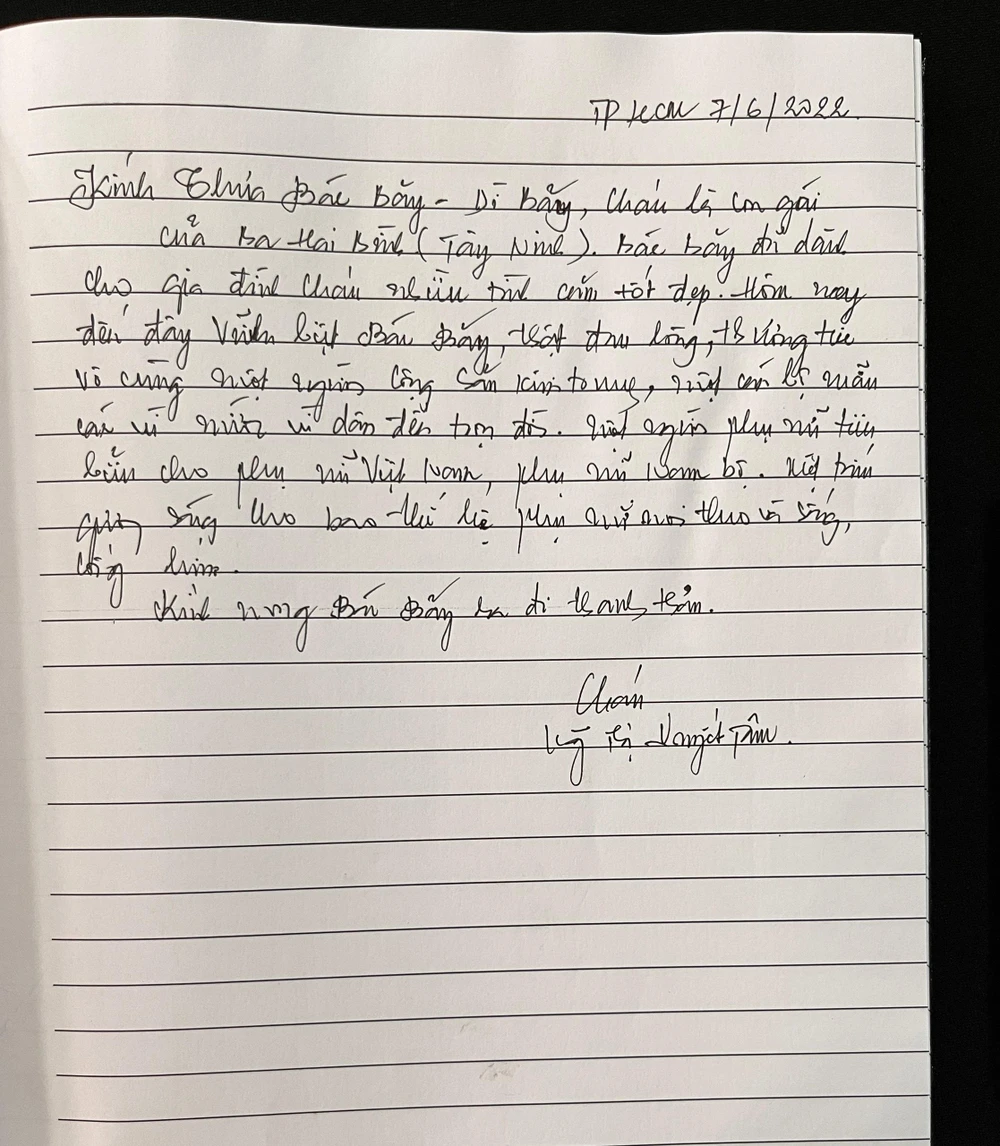 TP HCM 7/6/2022.
Kính Thưa Bác Bảy - Dì Bảy, Cháu là con gái
của Ba Hai Bình (Tây Ninh). Bác Bảy đã dành
cho gia đình cháu nhiều tình cảm tốt đẹp. Hôm nay
đến đây Vĩnh biệt Bác Bảy, thật đau lòng, thương tiếc
vô cùng một người Cộng Sản kiên trung, một cán bộ mẫn
cán vì nước vì dân đến trọn đời. Một người phụ nữ tiêu
biểu cho phụ nữ Việt Nam, phụ nữ Nam bộ. Một
gương sáng cho bao thế hệ phụ nữ noi theo và sống,
cống hiến.
Kính mong Bác Bảy ra đi thanh thản.
Cháu
Thị Tâm.